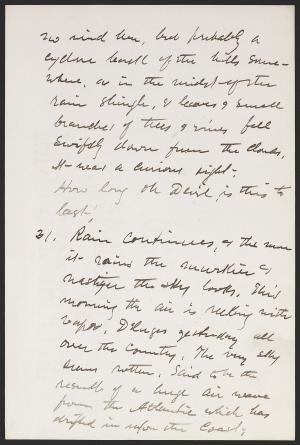 no wind here, but probably a
cyclone back of the hills some-
where, as in the midst of the
rain shingle, & leaves & small
branches of trees & vines fell
swiftly down from the clouds.
It was a curious sight.
How long oh Devil, is this to
last!
31. Rain continues, & the more
it rains the murkier &
nastier the sky looks. This
morning the air is reeking with
vapor. Deluges yesterday all
over the country. The very sky
seems rotten. Said to be the
result of a huge air wave
from the Atlantic which has
drifted in upon the Coast.